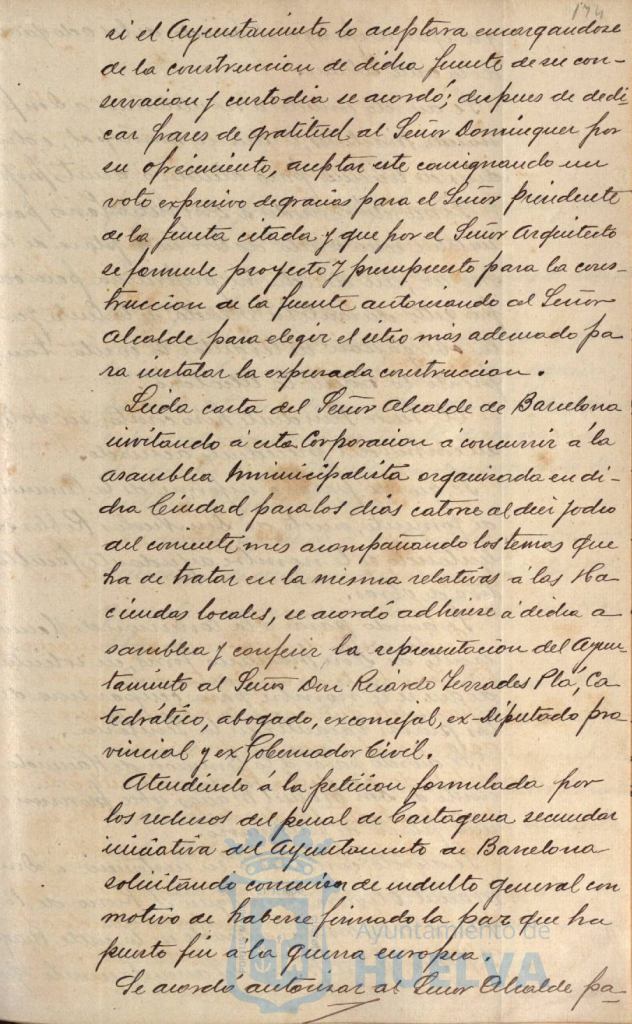 174
si el Ayuntamiento lo aceptara encargandose
de la construccion de dicha fuente de su con-
servacion y custodia se acordó; despues de dedi-
car frases de gratitud al Señor Dominguez por
su ofrecimiento, aceptar este consignando un
voto expresivo de gracias para el Señor Presidente
de la Junta citada y que por el Señor Arquitecto
se formule proyecto y presupuesto para la cons-
truccion de la fuente autorizando al Señor
Alcalde para elegir el sitio más adecuado pa
ra instalar la expresada construccion.
Leida carta del Señor Alcalde de Barcelona
invitando á esta Corporacion á concurrir á la
asamblea Municipalista organizada en di-
cha Ciudad para los dias catorce al diez y ocho
del corriente mes acompañando los temas que
ha de tratar en la misma relativas á las Ha
ciendas locales, se acordó adherirse á dicha a
samblea y conferir la representacion del Ayun-
tamiento al Señor Don Ricardo Terrades Plá, Ca
tedrático, abogado, exconcejal, ex-Diputado pro
vincial y ex Gobernador Civil.
Atendiendo á la peticion formulada por
los reclusos del penal de Cartagena secundar
iniciativa del Ayuntamiento de Barcelona
solicitando concesion de indulto general con
motivo de haberse firmado la paz que ha
puesto fin á la guerra europea.
Se acordó autorizar al Señor Alcalde pa-
Ayuntamiento de
HUELVA